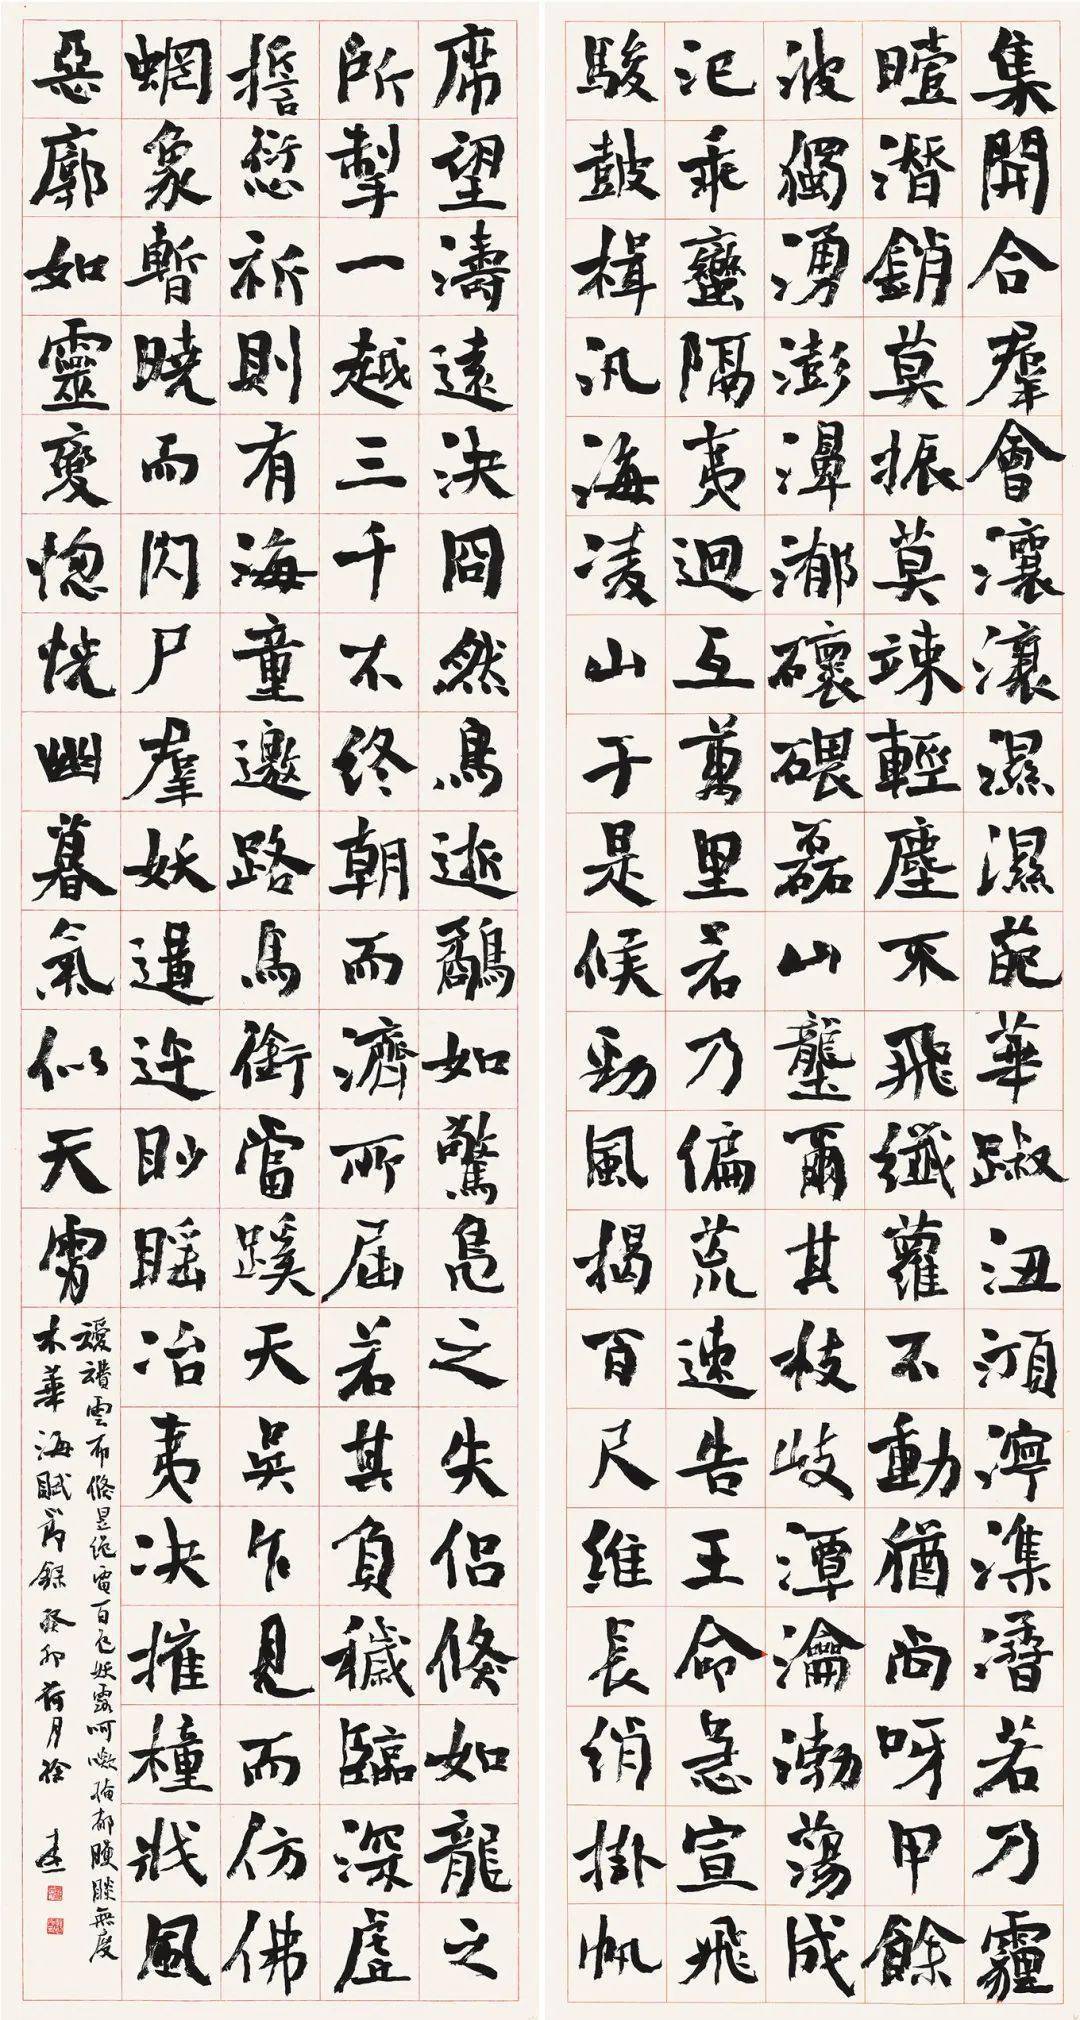 集開合羣會瀼瀼濕濕葩華踧沑澒濘潗㵫若乃霾
曀潛銷莫振莫竦輕塵不飛纖蘿不動猶尚呀甲餘
波獨湧澎濞碨磊山壟爾其枝岐潭瀹渤蕩成
汜乖蠻隔夷迴互萬里若乃偏荒速告王命急宣飛
駿鼓楫汎海凌山于是候勁風揭百尺維長綃掛帆
席望濤遠決冏然鳥逝鷸如驚鳧之失侶倏如龍之
所掣一越三千不終朝而濟所屆若其負穢臨深虛
誓愆祈則有海童邀路馬銜當蹊天吳乍見而仿佛
蝄象暫曉而閃尸羣妖遘迕眇䁘冶夷決摧橦戕風
惡廓如靈變惚恍幽暮氣似天霄
靉靅雲布倏昱絕電百色妖露呵㰲掩郁矆睒無度
木華海賦節錄癸卯荷月徐